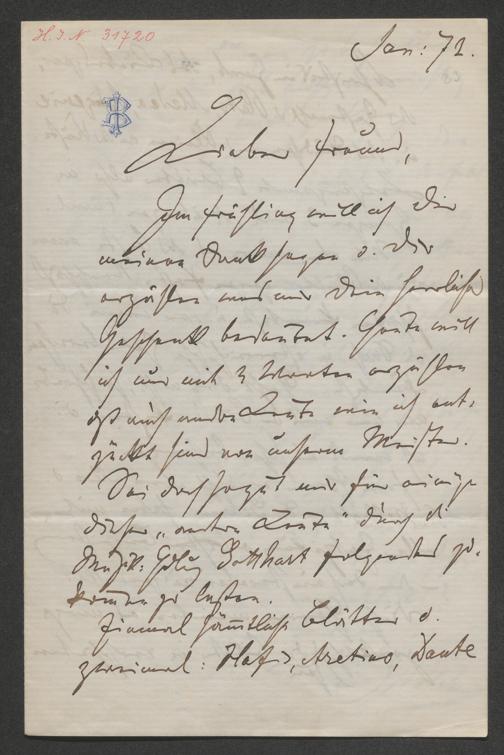 H. I. N. 31720
Jan: 72.
Lieber Freund,
Im Frühling will ich Dir
meinen Dank sagen u. Dir
erzählen was mir Dein herrliches
Geschenk bedeutet. Heute will
ich nur mit 2 Worten erzählen
daß auch andre Leute wie ich ent-
zückt sind von unserm Meister.
Sei doch so gut mir für einige
dieser „andren Leute“ durch die
Musik: Hdlg Gotthard folgendes zu-
kommen zu lassen.
Einmal sämtliche Blätter u.
zweimal: Hafis, Aretino, Dante